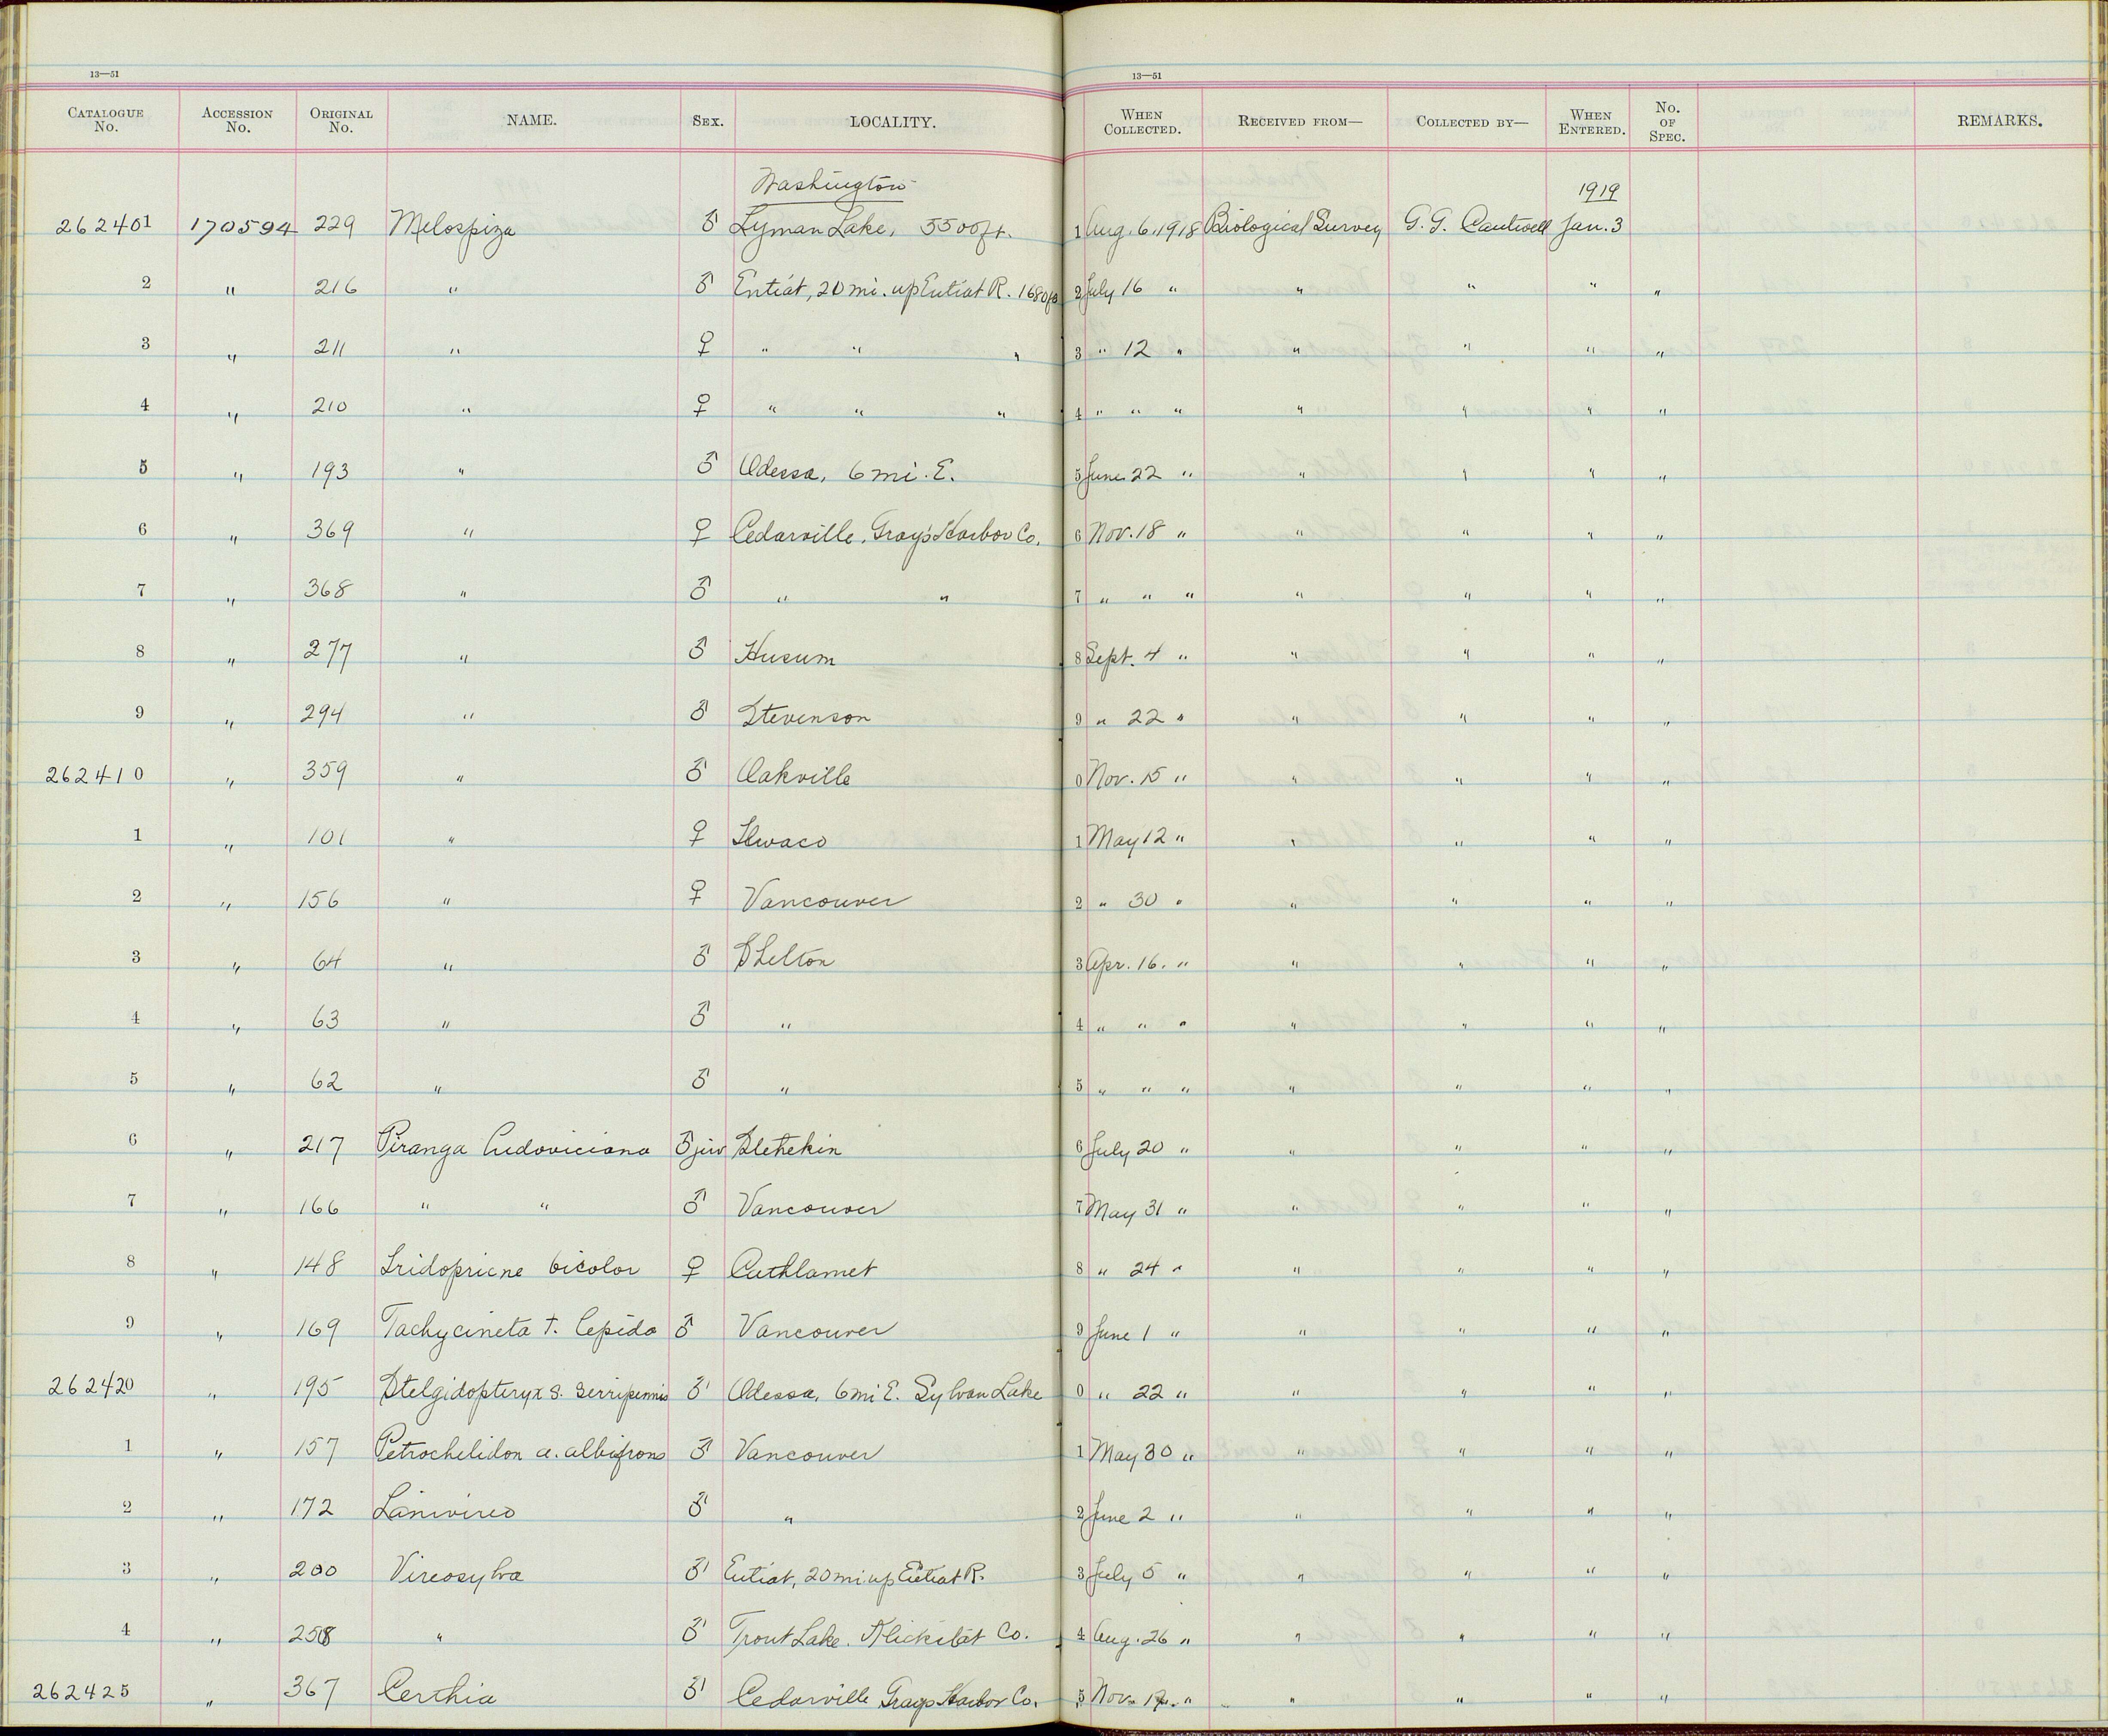 13—51 13—51
CATALOGUE No. ACCESSION No. ORIGINAL No. NAME. SEX. LOCALITY. WHEN COLLECTED. RECEIVED FROM— COLLECTED BY— WHEN ENTERED. No. OF SPEC. REMARKS.
Washington 1919
262401 170594 229 Melospiza ♂ Lyman Lake, 5500ft. 1 Aug. 6, 1918 Biological Survey G. G. Cantwell Jan. 3
2 " 216 " ♂ Entiat, 20 mi. up Entiat R. 1680ft 2 July 16 " " " " "
3 " 211 " ♀ " " " 3 " 12 " " " " "
4 " 210 " ♀ " " " 4 " " " " " " "
5 " 193 " ♂ Odessa, 6 mi. E. 5 June 22 " " " " "
6 " 369 " ♀ Cedarville, Gray's Harbor Co. 6 Nov. 18 " " " " "
7 " 368 " ♂ " " 7 " " " " " " "
8 " 277 " ♂ Husum 8 Sept. 4 " " " " "
9 " 294 " ♂ Stevenson 9 " 22 " " " " "
262410 " 359 " ♂ Oakville 0 Nov. 15 " " " " "
1 " 101 " ♀ Ilwaco 1 May 12 " " " " "
2 " 156 " ♀ Vancouver 2 " 30 " " " " "
3 " 64 " ♂ Shelton 3 Apr. 16. " " " " "
4 " 63 " ♂ " 4 " " " " " " "
5 " 62 " ♂ " 5 " " " " " " "
6 " 217 Piranga ludoviciana ♂ juv Stehekin 6 July 20 " " " " "
7 " 166 " " ♂ Vancouver 7 May 31 " " " " "
8 " 148 Iridoprocne bicolor ♀ Cathlamet 8 " 24 " " " " "
9 " 169 Tachycineta t. lepida ♂ Vancouver 9 June 1 " " " " "
262420 " 195 Stelgidopteryx s. serripennis ♂ Odessa, 6 mi E. Sylvan Lake 0 " 22 " " " " "
1 " 157 Petrochelidon a. albifrons ♂ Vancouver 1 May 30 " " " " "
2 " 172 Lanivireo ♂ " 2 June 2 " " " " "
3 " 200 Vireosylva ♂ Entiat, 20 mi up Entiat R. 3 July 5 " " " " "
4 " 258 " ♂ Trout Lake. Klickitat Co. 4 Aug. 26 " " " " "
262425 " 367 Certhia ♂ Cedarville Grays Harbor Co. 5 Nov. 17. " " " " "